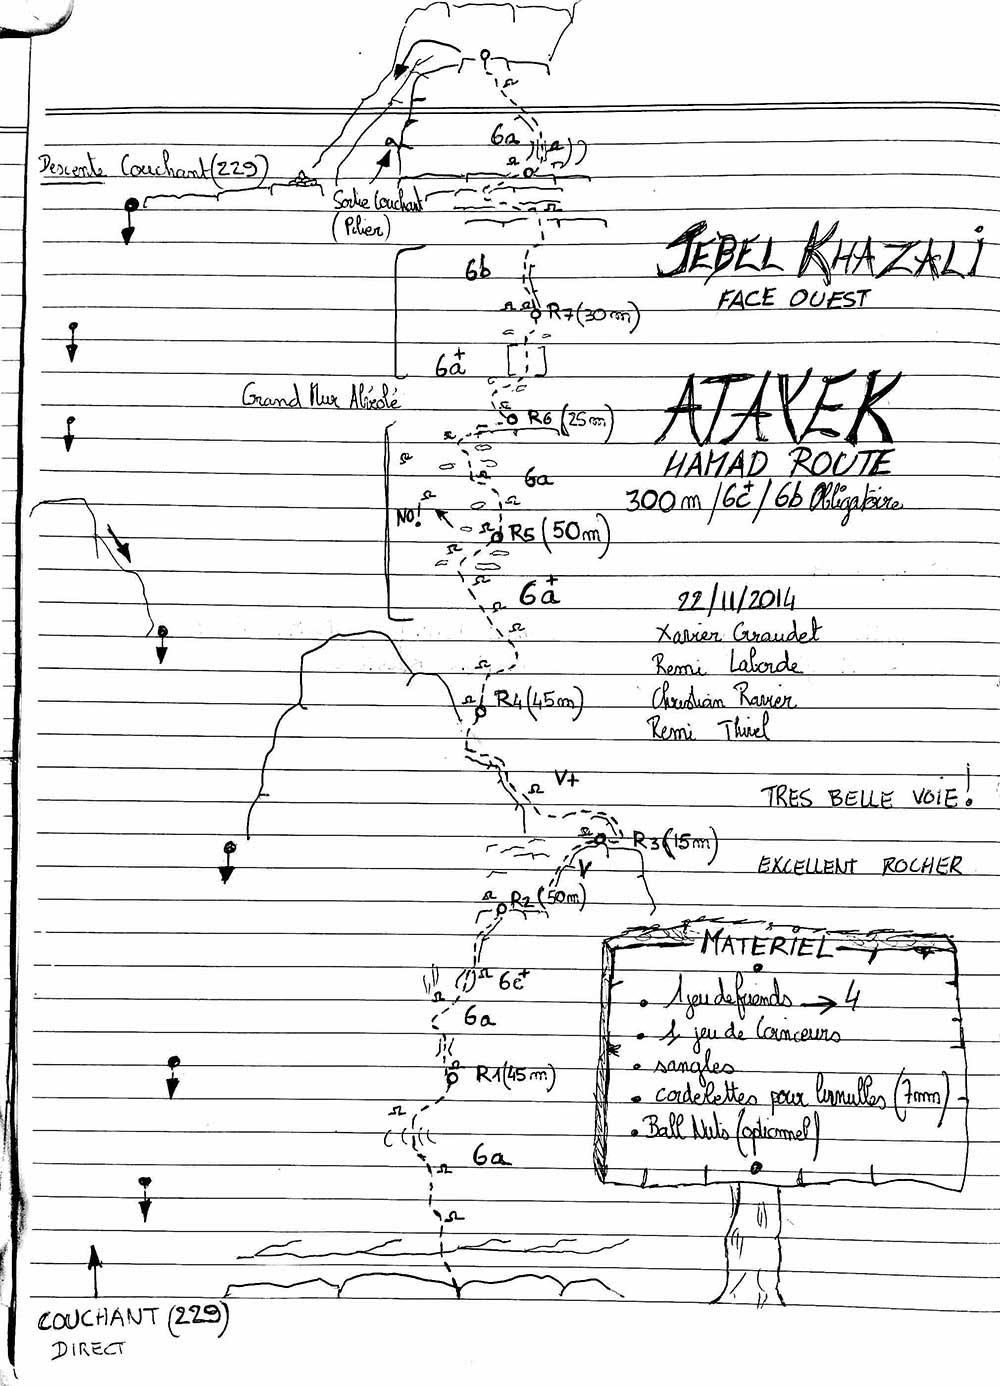 6a
Descente Couchant (229)
Sortie Couchant
(Pilier)
JEBEL KHAZALI
FACE OUEST
6b
R7 (30m)
6a+
Grand Mur Alvéolé
R6 (25m)
ATAYEK
HAMAD ROUTE
300 m / 6c+ / 6b Obligatoire
6a
NO!
R5 (50m)
6a+
22/11/2014
Xavier Graudet
Remi Laborde
Christian Ravier
Remi Thivel
R4 (45m)
V+
TRES BELLE VOIE!
R3 (15m)
EXCELLENT ROCHER
V
R2 (50m)
6c+
6a
R1 (45m)
6a
MATERIEL
• 1 jeu de friends → 4
• 1 jeu de Coinceurs
• sangles
• cordelettes pour lunulles (7mm)
• Ball Nuts (optionnel)
COUCHANT (229)
DIRECT